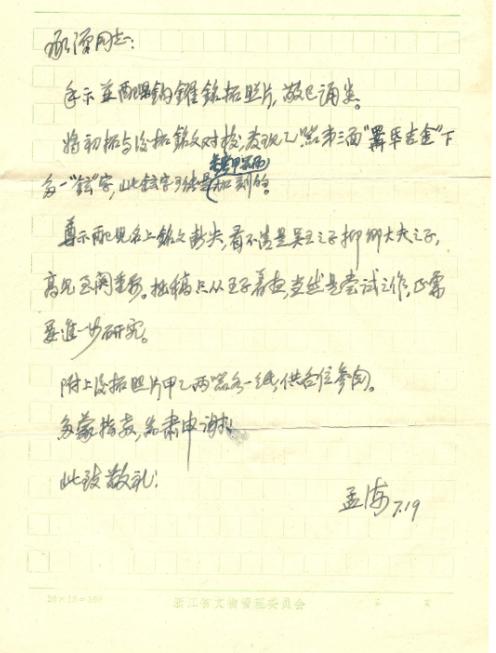 承源同志：
手示并配儿钩鑃铭拓照片，敬已诵悉。
将初拓与后拓铭文对校，发现乙器第三面"择厥吉金"下
多一"铉"字，此铉字可能是加刻的。
尊示配儿名上铭文断失，看不清是吴王之子抑卿大夫之子，
高见至关重要。拙稿只从王子着想，当然是尝试之作，正需
要进一步研究。
附上后拓照片甲乙两器各一纸，供台位参阅。
多蒙指教，肃申谢！
此致敬礼！
孟海 7.19
20×15=300 浙江省文物管理委员会